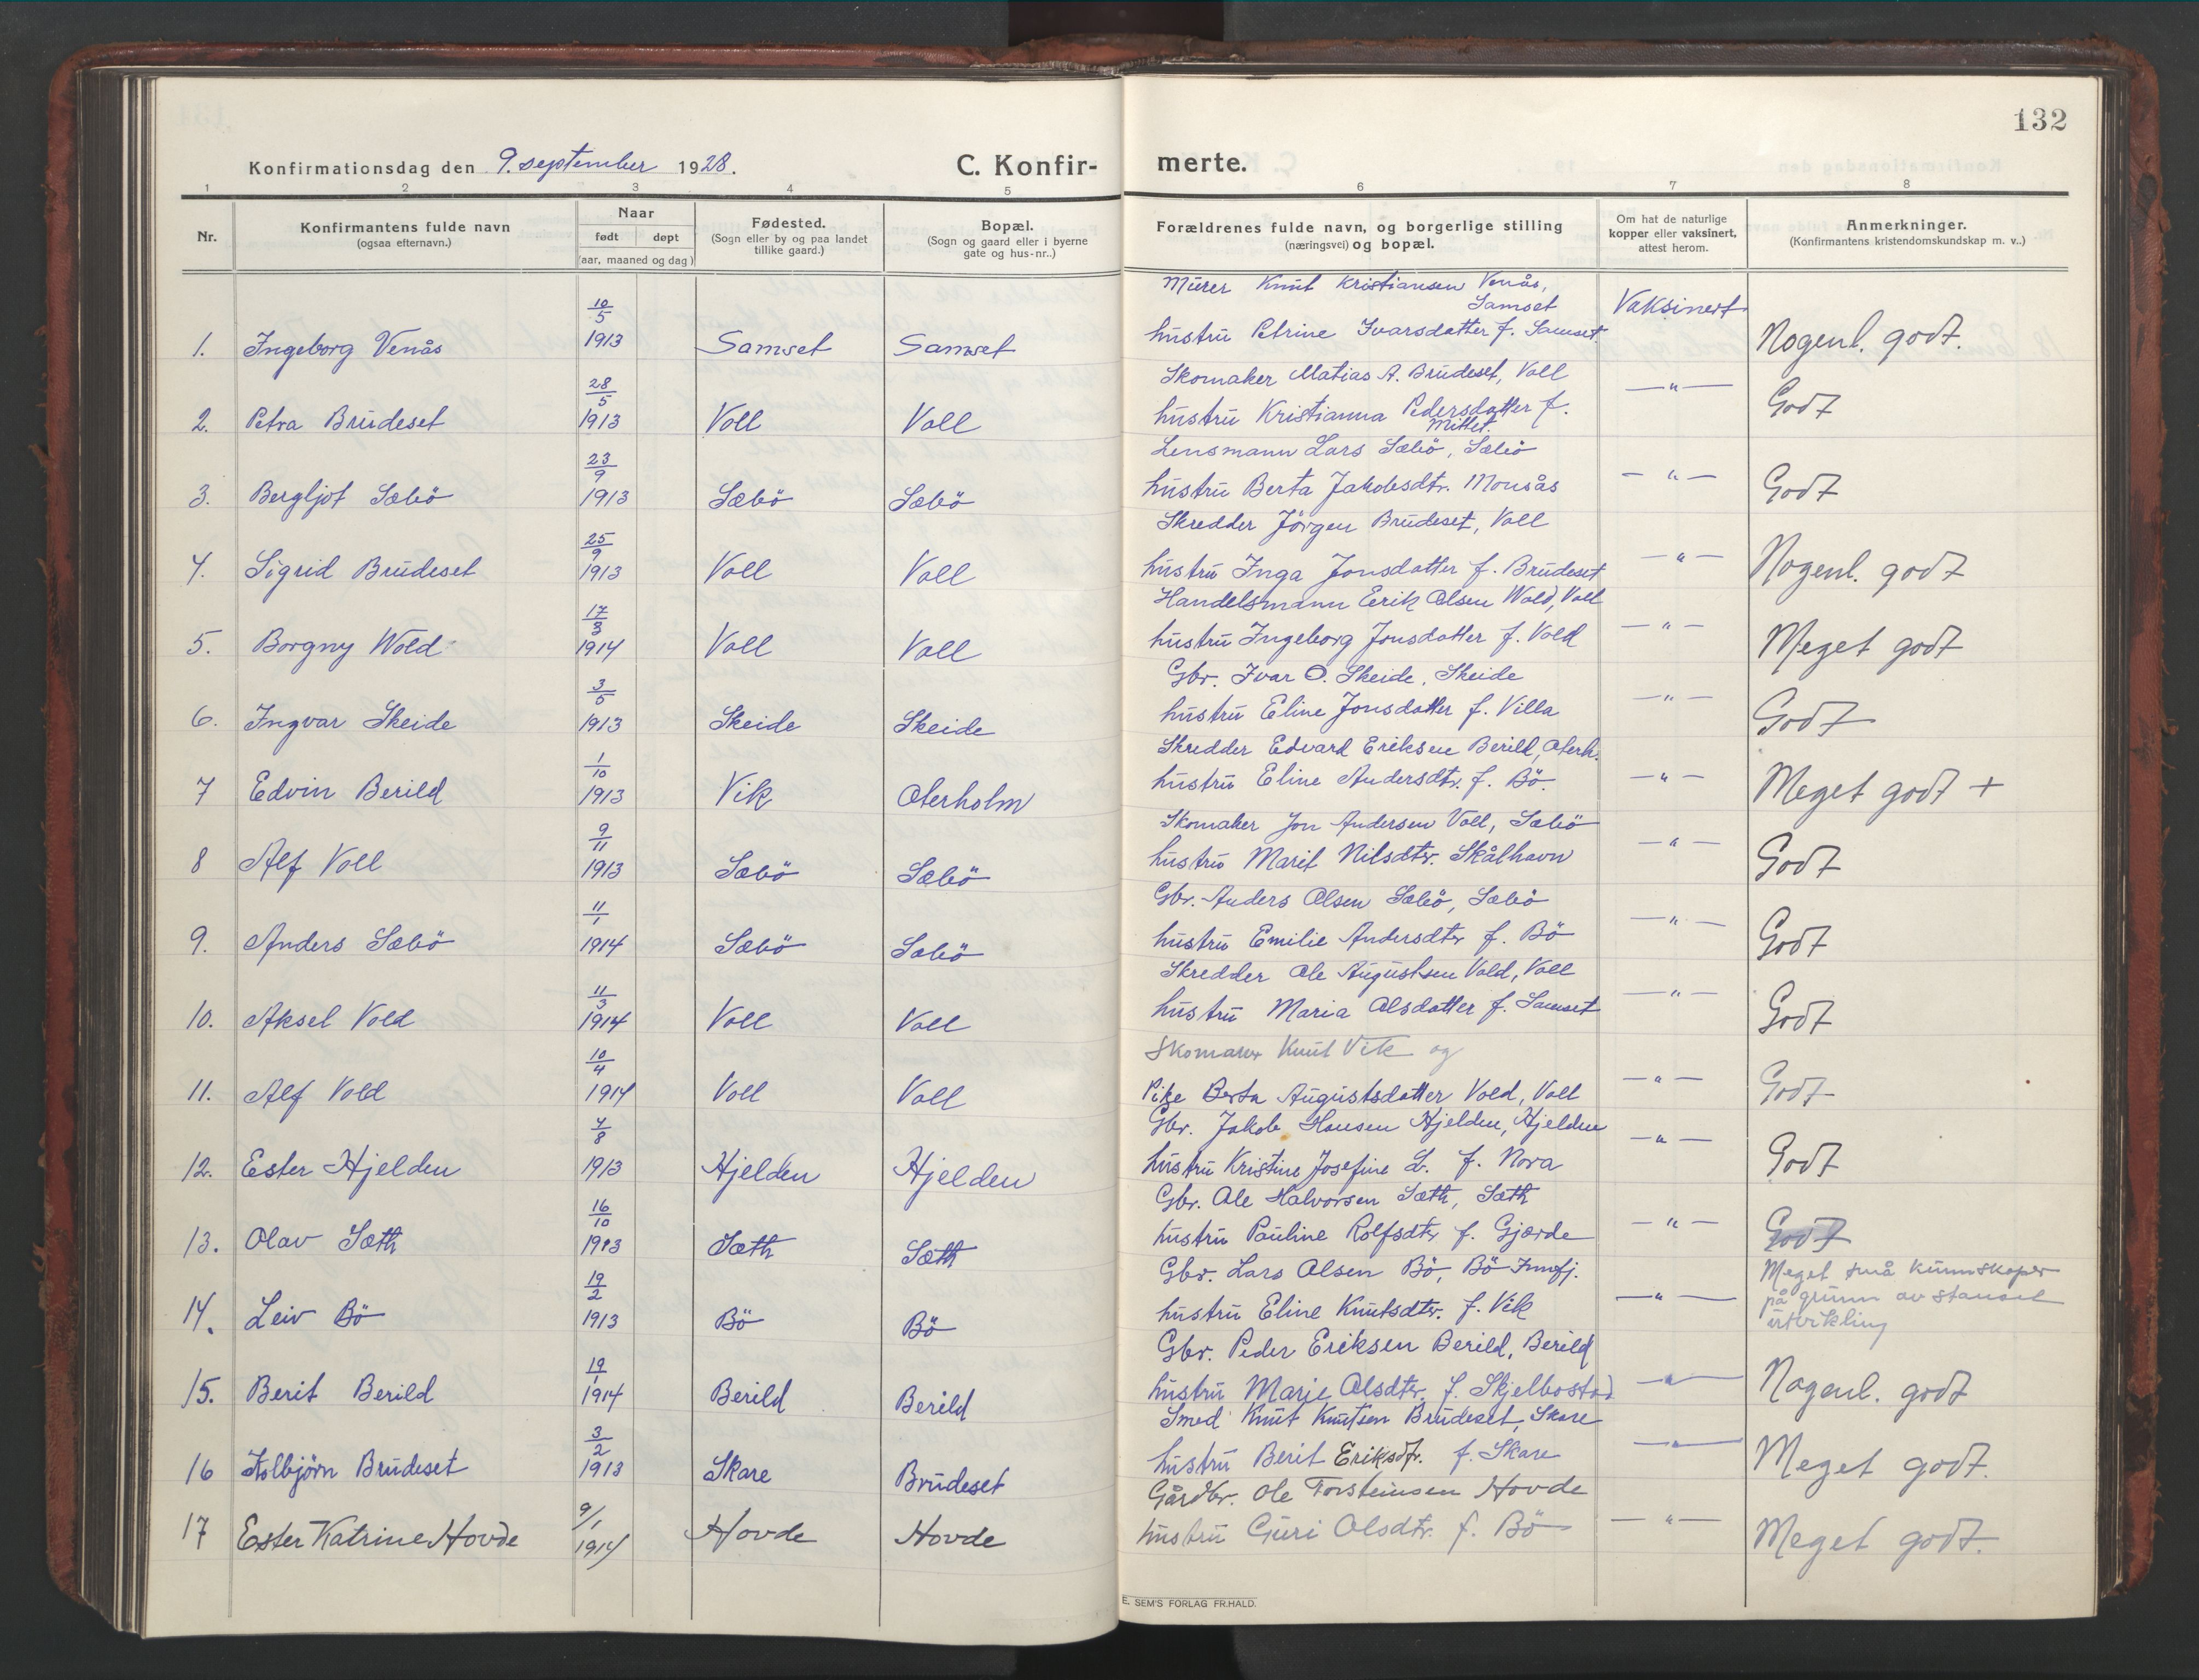 132
Konfirmationsdag den 9. september 1928.
C. Konfirmerte.
1 2 3 4 5 6 7 8
Nr.
Konfirmantens fulde navn
(ogsaa efternavn.)
Naar
født døpt
(aar, maaned og dag)
Fødested.
(Sogn eller by og paa landet
tillike gaard.)
Bopæl.
(Sogn og gaard eller i byerne
gate og hus-nr..)
Forældrenes fulde navn, og borgerlige stilling
(næringsvei) og bopæl.
Om hat de naturlige
kopper eller vaksinert,
attest herom.
Anmerkninger.
(Konfirmantens kristendomskundskap m. v..)
Murer Knut Kristiansen Venås,
Samset
1. Ingeborg Venås 10/5 1913 Samset Samset hustru Petrine Ivarsdatter f. Samset Vaksinert Nogenl. godt.
Skomaker Matias A. Brudeset, Voll
2. Petra Brudeset 28/5 1913 Voll Voll hustru Kristianna Pedersdatter f. Mittet. —"— Godt
Lensmann Lars Sæbö, Sæbö
3. Bergljot Sæbö 23/9 1913 Sæbö Sæbö hustru Berta Jakobsdtr. Monsås —"— Godt
Skredder Jörgen Brudeset, Voll
4. Sigrid Brudeset 25/9 1913 Voll Voll hustru Inga Jonsdatter f. Brudeset —"— Nogenl. godt
Handelsmann Eerik Olsen Wold, Voll
5. Borgny Wold 17/3 1914 Voll Voll hustru Ingeborg Jonsdatter f. Vold —"— Meget godt
Gbr. Ivar O. Skeide, Skeide
6. Ingvar Skeide 3/5 1913 Skeide Skeide hustru Eline Jonsdatter f. Villa —"— Godt
Skredder Edvard Eriksen Berild, Oterh.
7 Edvin Berild 1/10 1913 Vik Oterholm hustru Eline Andersdtr. f. Bö. —"— Meget godt +
Skomaker Jon Andersen Voll, Sæbö
8 Alf Voll 9/11 1913 Sæbö Sæbö hustru Marit Nilsdtr. Skålhavn —"— Godt
Gbr. Anders Olsen Sæbö, Sæbö
9. Anders Sæbö 11/1 1914 Sæbö Sæbö hustru Emilie Andersdtr f. Bö —"— Godt
Skredder Ole Augustsen Vold, Voll
10. Aksel Vold 11/3 1914 Voll Voll hustru Maria Olsdatter f. Samset —"— Godt
Skomaker Knut Vik og
11. Alf Vold 10/4 1914 Voll Voll Pike Berta Augustsdatter Vold, Voll —"— Godt
Gbr. Jakob Hansen Hjelden, Hjelden
12. Ester Hjelden 4/8 1913 Hjelden Hjelden hustru Kristine Josefine L. f. Nora —"— Godt
Gbr. Ole Halvorsen Sæth, Sæth
13. Olav Sæth 16/10 1913 Sæth Sæth hustru Pauline Rolfsdtr f. Gjærde —"— Godt
Gbr. Lars Olsen Bö, Bö Innfj.
14. Leiv Bö 19/2 1913 Bö Bö hustru Eline Knutsdtr. f. Vik —"— Meget små kunnskaper
på grunn av stanset
utvikling
Gbr. Peder Eriksen Berild, Berild
15. Berit Berild 19/1 1914 Berild Berild hustru Marie Olsdtr. f. Skjelbostad —"— Nogenl. godt
Smed Knut Knutsen Brudeset, Skare
16 Kolbjörn Brudeset 3/2 1913 Skare Brudeset hustru Berit Eriksdtr. f. Skare —"— Meget godt.
Gårdbr. Ole Torsteinsen Hovde
17 Ester Katrine Hovde 9/1 1914 Hovde Hovde hustru Guri Olsdtr. f. Bö —"— Meget godt.
E. SEM'S FORLAG FR.HALD.